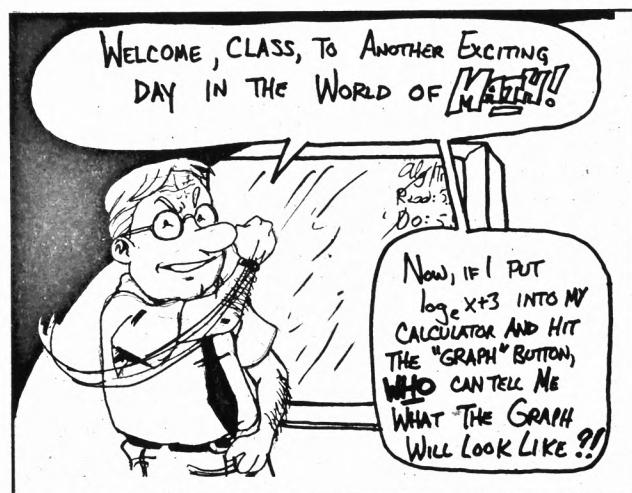 WELCOME, CLASS, TO ANOTHER EXCITING
DAY IN THE WORLD OF MATH!
alg/tr
Read:
Do:
NOW, IF I PUT
logₑ x+3 INTO MY
CALCULATOR AND HIT
THE "GRAPH" BUTTON,
WHO CAN TELL ME
WHAT THE GRAPH
WILL LOOK LIKE?!